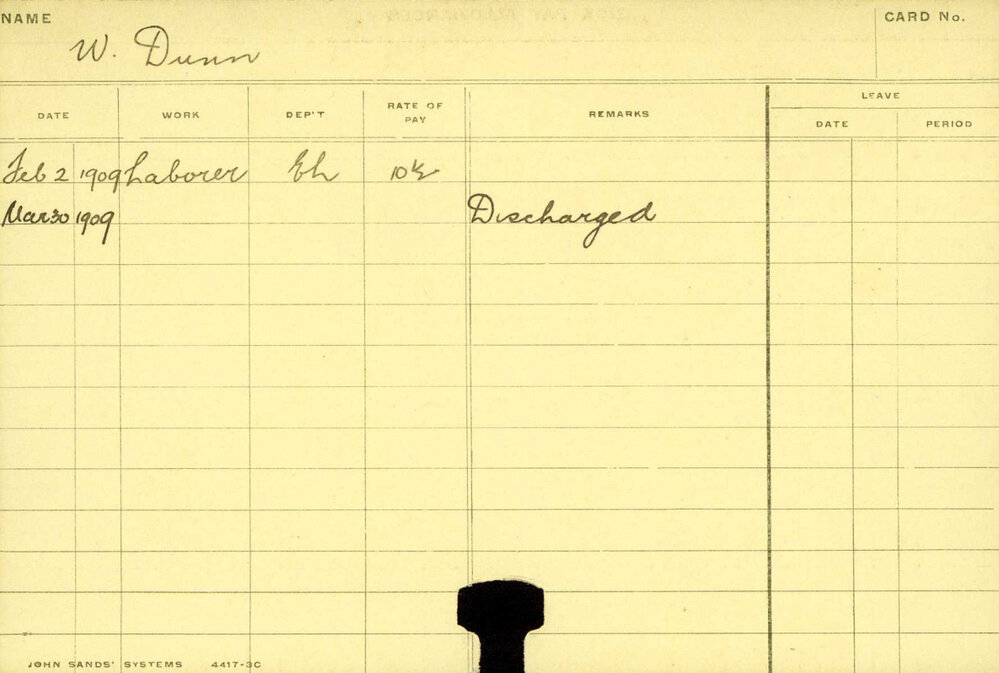 NAME
W. Dunn
CARD No.
DATE WORK DEP'T RATE OF PAY REMARKS
LEAVE
DATE PERIOD
Feb 2 1909 Laborer Eh 10½
Mar 30 1909 Discharged
JOHN SANDS' SYSTEMS 4417-3C